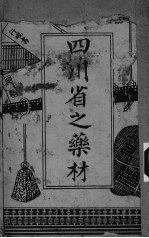 四川省之藥材